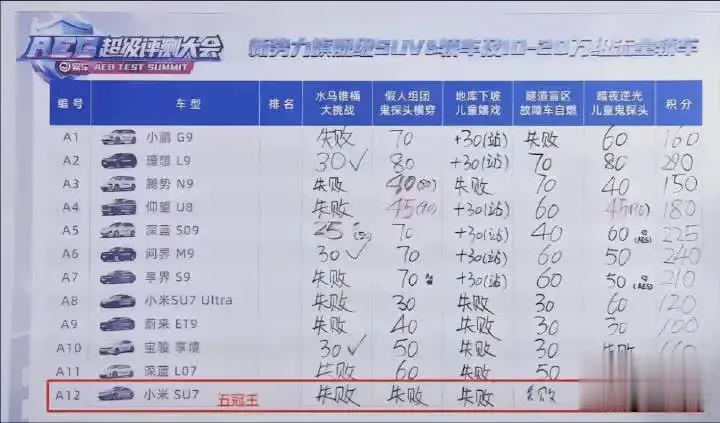 AEB 超级评测大会
易车 AEB TEST SUMMIT
新势力旗舰级SUV&轿车及10-20万级纯电轿车
编号 车型 排名 水马锥桶大挑战 假人组团鬼探头横穿 地库下坡儿童嬉戏 隧道盲区故障车自燃 暗夜逆光儿童鬼探头 积分
A1 小鹏 G9 失败 70 +30(站) 失败 60 160
A2 理想 L9 30✓ 80 +30(站) 70 80 290
A3 腾势 N9 失败 40(80) 失败 70 40 150
A4 仰望 U8 失败 45(90) +30(站) 60 45(90) 180
A5 深蓝 S09 25(50) 70 +30(站) 40 60(AES) 225
A6 问界 M9 30✓ 70 +30(站) 60 50 240
A7 享界 S9 失败 70 +30(站) 60 50(AES) 210
A8 小米SU7 Ultra 失败 30 失败 30 60 120
A9 蔚来 ET9 失败 40 失败 30 30 100
A10 宝骏 享境 30✓ 50 失败 30 失败
A11 深蓝 L07 失败 60 失败 50
A12 小米 SU7 五冠王 失败 失败 失败 失败